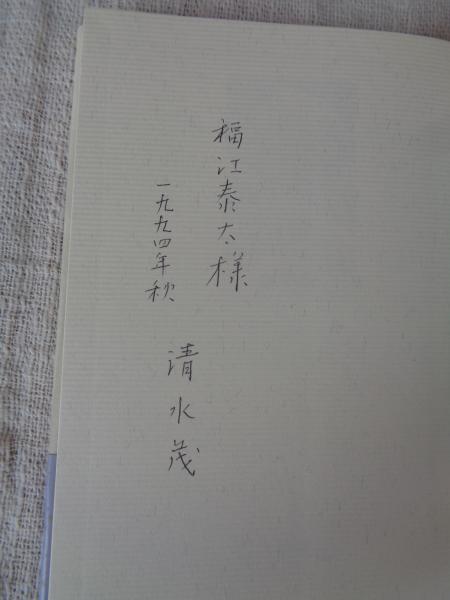 福江泰太様
一九九四年秋
清水茂